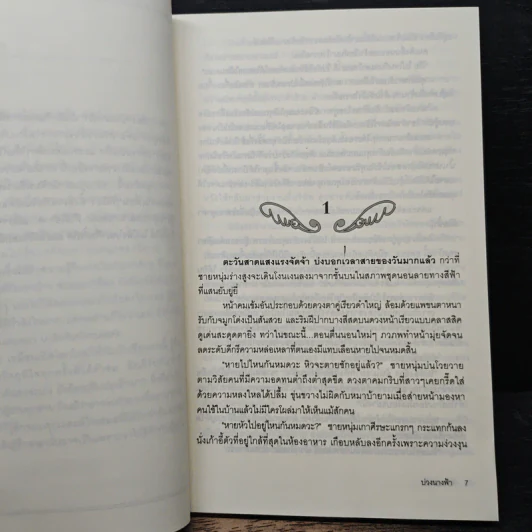 1
ตะวันสาดแสงแรงจัดจ้า บ่งบอกเวลาสายของวันมากแล้ว กว่าที่
ชายหนุ่มร่างสูงจะเดินโงนเงนลงมาจากชั้นบนในสภาพชุดนอนลายทางสีฟ้า
ที่แสนยับยู่ยี่
หน้าคมเข้มอันประกอบด้วยดวงตาคู่เรียวดำใหญ่ ล้อมด้วยแพขนตาหนา
รับกับจมูกโด่งเป็นสันสวย และริมฝีปากบางสีสดบนดวงหน้าเรียวแบบคลาสสิค
ดูเด่นสะดุดตายิ่ง ทว่าในขณะนี้...ตอนตื่นนอนใหม่ๆ ภวภพทำหน้ามุ่ยจัดจน
ลดระดับดีกรีความหล่อเหลาที่ตนเองมีแทบเลือนหายไปจนหมดสิ้น
"หายไปไหนกันหมดวะ หิวจะตายชักอยู่แล้ว?" ชายหนุ่มบ่นโวยวาย
ตามวิสัยคนที่มีความอดทนต่ำถึงต่ำสุดขีด ดวงตาคมกริบที่สาวๆเคยกรี๊ดใส่
ด้วยความหลงใหลได้ปลื้ม ขุ่นขวางไม่ผิดกับหมาบ้ายามเมื่อส่ายหน้ามองหา
คนใช้ในบ้านแล้วไม่มีใครโผล่มาให้เห็นแม้สักคน
"หายหัวไปอยู่ไหนกันหมดวะ?" ชายหนุ่มเกาศีรษะแกรกๆ กระแทกก้นลง
นั่งเก้าอี้ตัวที่อยู่ใกล้ที่สุดในห้องอาหาร เกือบหลับลงอีกครั้งเพราะความง่วงงุน
บ่วงนางฟ้า 7